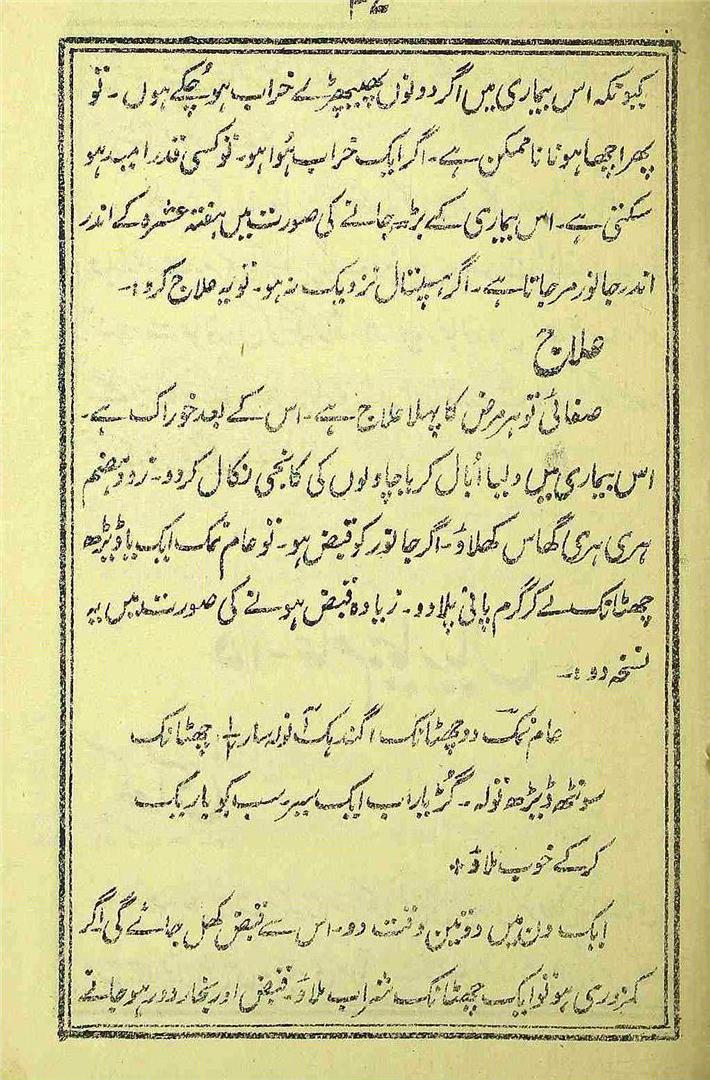 ۳۴
کیونکہ اس بیماری میں اگر دونوں پھیپھڑے خراب ہو چکے ہوں۔ تو
پھر اچھا ہونا ناممکن ہے۔ اگر ایک خراب ہُوا ہو۔ تو کسی قدر امید ہو
سکتی ہے۔ اس بیماری کے بڑھ جانے کی صورت میں ہفتہ عشرہ کے اندر
اندر جانور مر جاتا ہے۔ اگر ہسپتال نزدیک نہ ہو۔ تو یہ علاج کرو:۔
علاج
صفائی تو ہر مرض کا پہلا علاج ہے۔ اس کے بعد خوراک ہے۔
اس بیماری میں دلیا اُبال کر یا چاولوں کی کانجی نکال کر دو۔ زود ہضم
ہری ہری گھاس کھلاؤ۔ اگر جانور کو قبض ہو۔ تو عام نمک ایک یا ڈیڑھ
چھٹانک لے کر گرم پانی پلا دو۔ زیادہ قبض ہونے کی صورت میں یہ
نسخہ دو:۔
عام نمک دو چھٹانک گندہک آنولہ سار ½ چھٹانک
سونٹھ ڈیڑھ تولہ۔ گُڑ یا راب ایک سیر سب کو باریک
کر کے خوب ملاؤ ٭
ایک دن میں دو تین وقت دو۔ اس سے قبض کھل جائے گی اگر
کمزوری ہو تو ایک چھٹانک شراب ملاؤ۔ قبض اور بخار دور ہو جانے